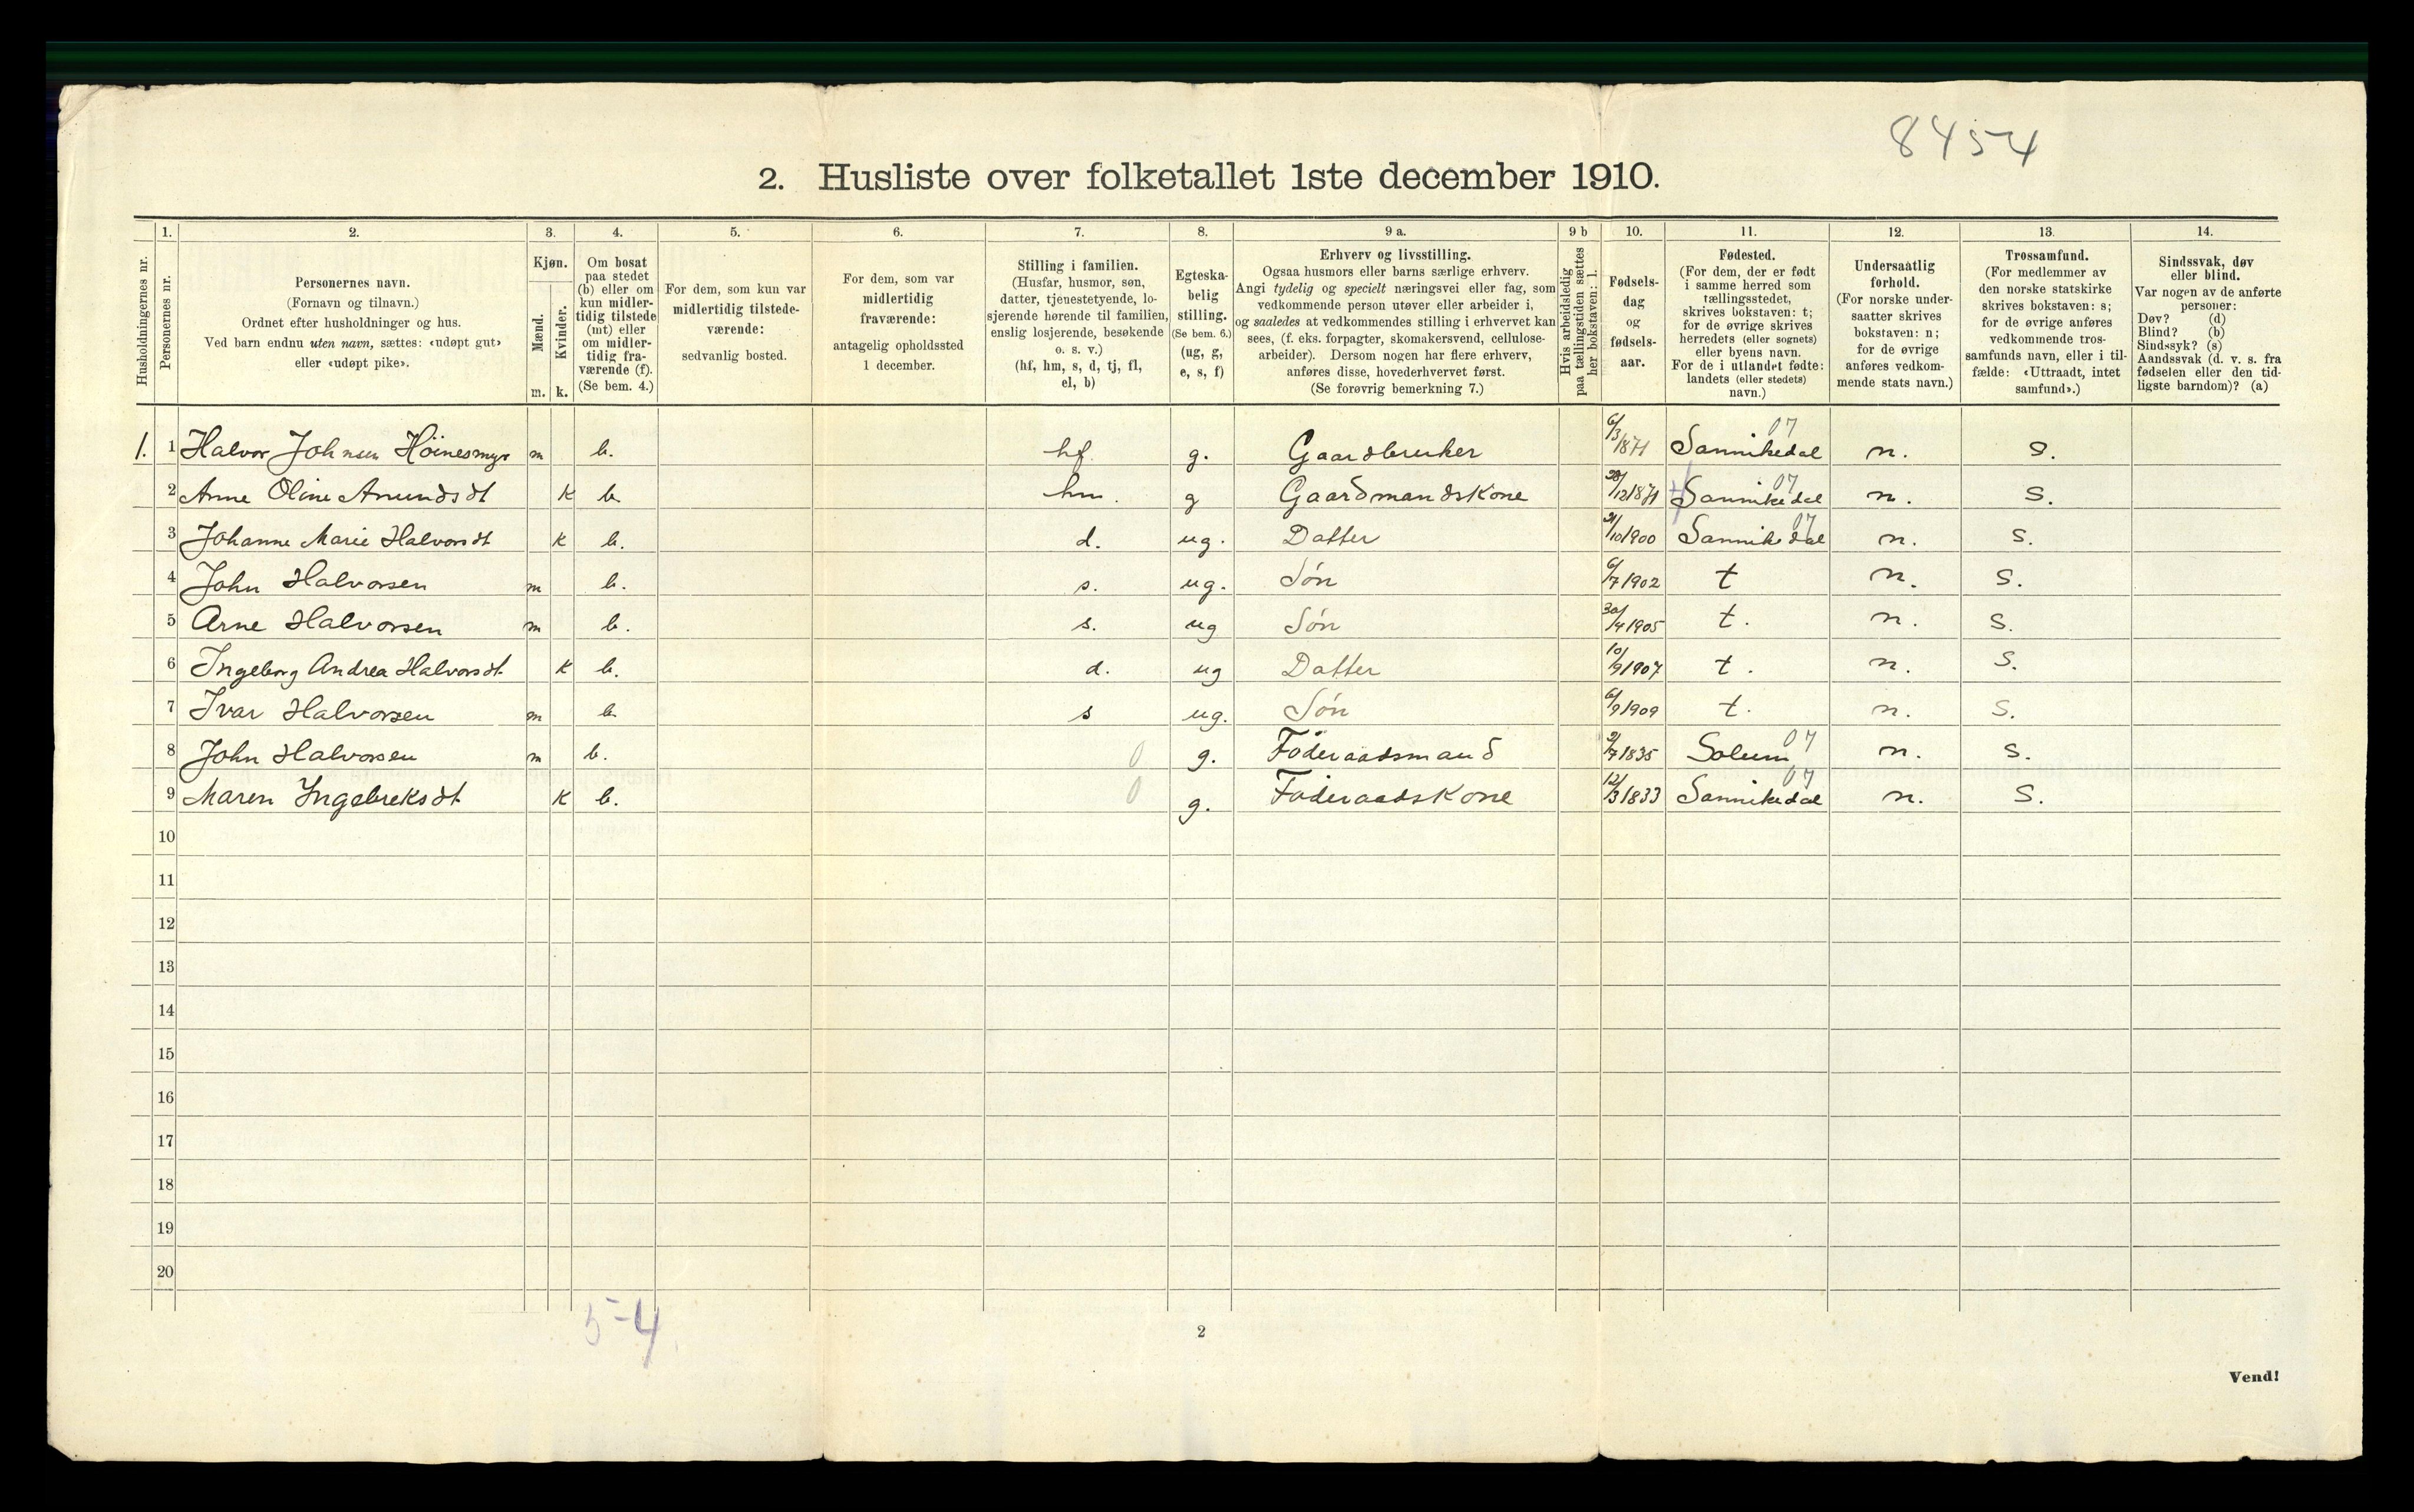 8454
2. Husliste over folketallet 1ste december 1910.
Husholdningernes nr.
1.
Personernes nr.
2.
Personernes navn.
(Fornavn og tilnavn.)
Ordnet efter husholdninger og hus.
Ved barn endnu uten navn, sættes: «udøpt gut»
eller «udøpt pike».
3.
Kjøn.
Mænd.
Kvinder.
m. k.
4.
Om bosat
paa stedet
(b) eller om
kun midler-
tidig tilstede
(mt) eller
om midler-
tidig fra-
værende (f).
(Se bem. 4.)
5.
For dem, som kun var
midlertidig tilstede-
værende:
sedvanlig bosted.
6.
For dem, som var
midlertidig
fraværende:
antagelig opholdssted
1 december.
7.
Stilling i familien.
(Husfar, husmor, søn,
datter, tjenestetyende, lo-
sjerende hørende til familien,
enslig losjerende, besøkende
o. s. v.)
(hf, hm, s, d, tj, fl,
el, b)
8.
Egteska-
belig
stilling.
(Se bem. 6.)
(ug, g,
e, s, f)
9 a.
Erhverv og livsstilling.
Ogsaa husmors eller barns særlige erhverv.
Angi tydelig og specielt næringsvei eller fag, som
vedkommende person utøver eller arbeider i,
og saaledes at vedkommendes stilling i erhvervet kan
sees, (f. eks. forpagter, skomakersvend, cellulose-
arbeider). Dersom nogen har flere erhverv,
anføres disse, hovederhvervet først.
(Se forøvrig bemerkning 7.)
9 b
Hvis arbeidsledig
paa tællingstiden sættes
her bokstaven: l.
10.
Fødsels-
dag
og
fødsels-
aar.
11.
Fødested.
(For dem, der er født
i samme herred som
tællingsstedet,
skrives bokstaven: t;
for de øvrige skrives
herredets (eller sognets)
eller byens navn.
For de i utlandet fødte:
landets (eller stedets)
navn.)
12.
Undersaatlig
forhold.
(For norske under-
saatter skrives
bokstaven: n;
for de øvrige
anføres vedkom-
mende stats navn.)
13.
Trossamfund.
(For medlemmer av
den norske statskirke
skrives bokstaven: s;
for de øvrige anføres
vedkommende tros-
samfunds navn, eller i til-
fælde: «Uttraadt, intet
samfund».)
14.
Sindssvak, døv
eller blind.
Var nogen av de anførte
personer:
Døv? (d)
Blind? (b)
Sindssyk? (s)
Aandssvak (d. v. s. fra
fødselen eller den tid-
ligste barndom)? (a)
1. 1 Halvor Johnsen Höinesmyr m b. hf. g. Gaardbruker 6/3 1871 Sannikedal 07 n. s.
2 Anne Oline Amundsdt k b hm. g Gaardmandskone 1871 Sannikedal 07 n. s.
3 Johanne Marie Halvorsdt k b. d. ug. Datter 21/10 1900 Sannikedal 07 n. s.
4 John Halvorsen m b. s. ug. Søn 6/7 1902 t n. s.
5 Arne Halvorsen m b. s. ug Søn 30/4 1905 t. n. s.
6 Ingeborg Andrea Halvorsdt. k b. d. ug Datter 10/9 1907 t. n. s.
7 Ivar Halvorsen m b s ug. Søn 6/9 1909 t. n. s.
8 John Halvorsen m b. 0 g. Föderaadsmand 1835 Solum 07 n. s.
9 Maren Ingebreksdt k b. 0 g. Föderaadskone 12/3 1833 Sannikedal 07 n. s.
10
11
12
13
14
15
16
17
18
19
20
5-4
2
Vend!